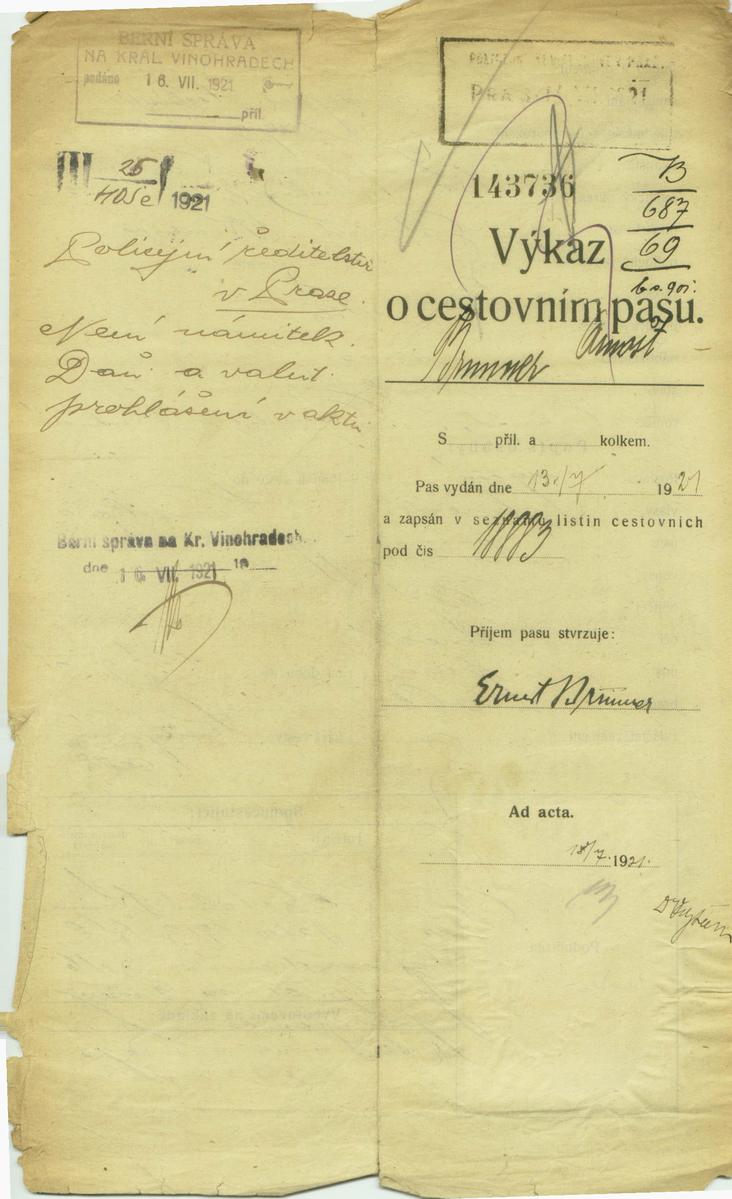 BERNÍ SPRÁVA
NA KRÁL. VINOHRADECH
podáno 16. VII. 1921
příl.
25
1921
Policejní ředitelství
v Praze.
Není námitek.
Daň. a valut.
prohlášení v aktu.
Berní správa na Kr. Vinohradech.
dne 16. VII. 1921 19
143736
B
687
69
Výkaz
o cestovním pasu.
Brunner Arnošt
S příl. a kolkem.
Pas vydán dne 13./7 1921
a zapsán v seznamu listin cestovních
pod čís
Příjem pasu stvrzuje:
Ernst Brunner
Ad acta.
18/7. 1921.